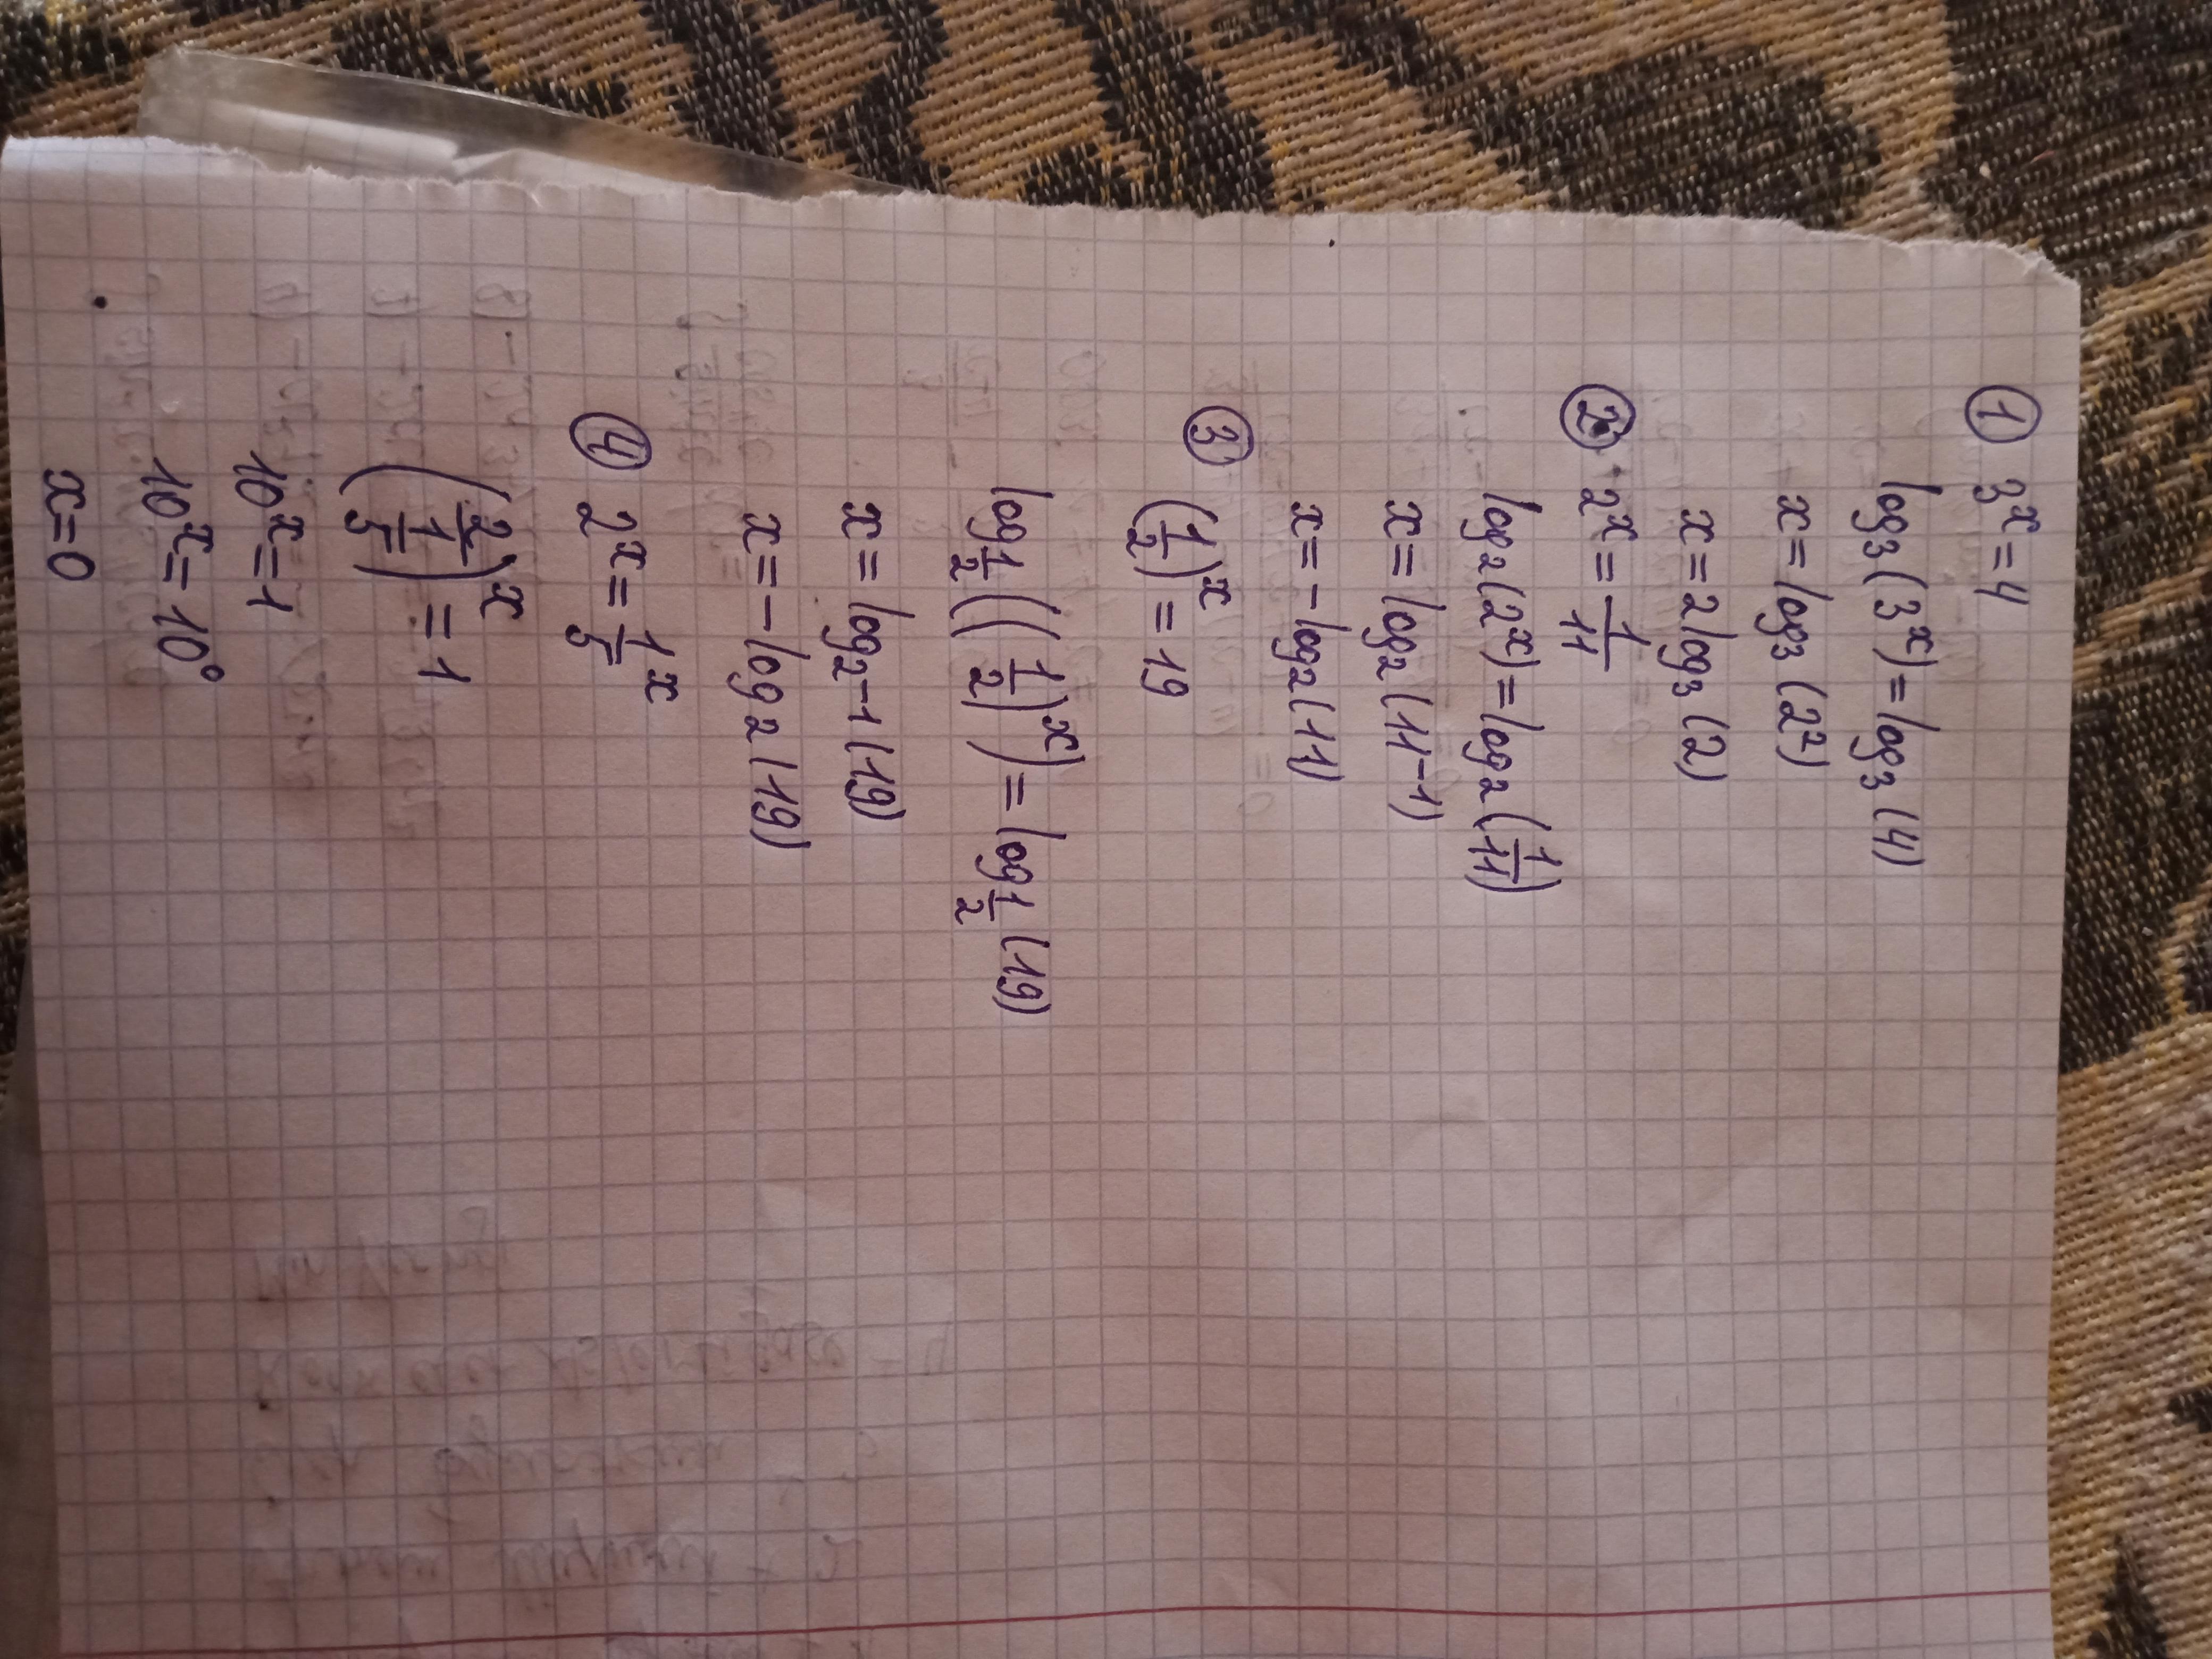 ① 3ˣ = 4
log₃(3ˣ) = log₃(4)
x = log₃(2²)
x = 2log₃(2)
② 2ˣ = 1/11
log₂(2ˣ) = log₂(1/11)
x = log₂(11-1)
x = -log₂(11)
③ (1/2)ˣ = 19
log 1/2 ((1/2)ˣ) = log 1/2 (19)
x = log₂-1(19)
x = -log₂(19)
④ 2ˣ = 1/5 ˣ
(2/(1/5))ˣ = 1
10ˣ = 1
10ˣ = 10⁰
x = 0